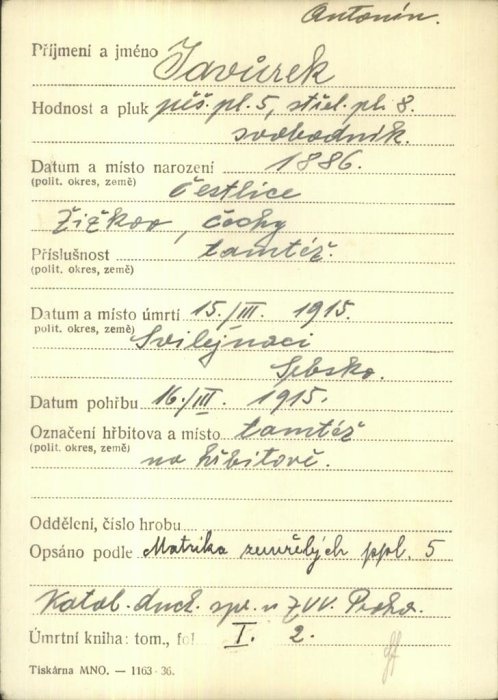 Antonín.
Příjmení a jméno Javůrek
Hodnost a pluk pěš. pl. 5, střel. pl. 8.
svobodník.
Datum a místo narození 1886.
(polit. okres, země) Čestlice
Žižkov, Čechy
Příslušnost tamtéž.
(polit. okres, země)
Datum a místo úmrtí 15./III. 1915.
(polit. okres, země) Svilejnaci
Srbsko.
Datum pohřbu 16./III. 1915.
Označení hřbitova a místo tamtéž
(polit. okres, země) na hřbitově.
Oddělení, číslo hrobu
Opsáno podle Matrika zemřelých ppl. 5
Katol. duch. spr. u ZVV. Praha.
Úmrtní kniha: tom., fol. I. 2.
Tiskárna MNO. — 1163-36.